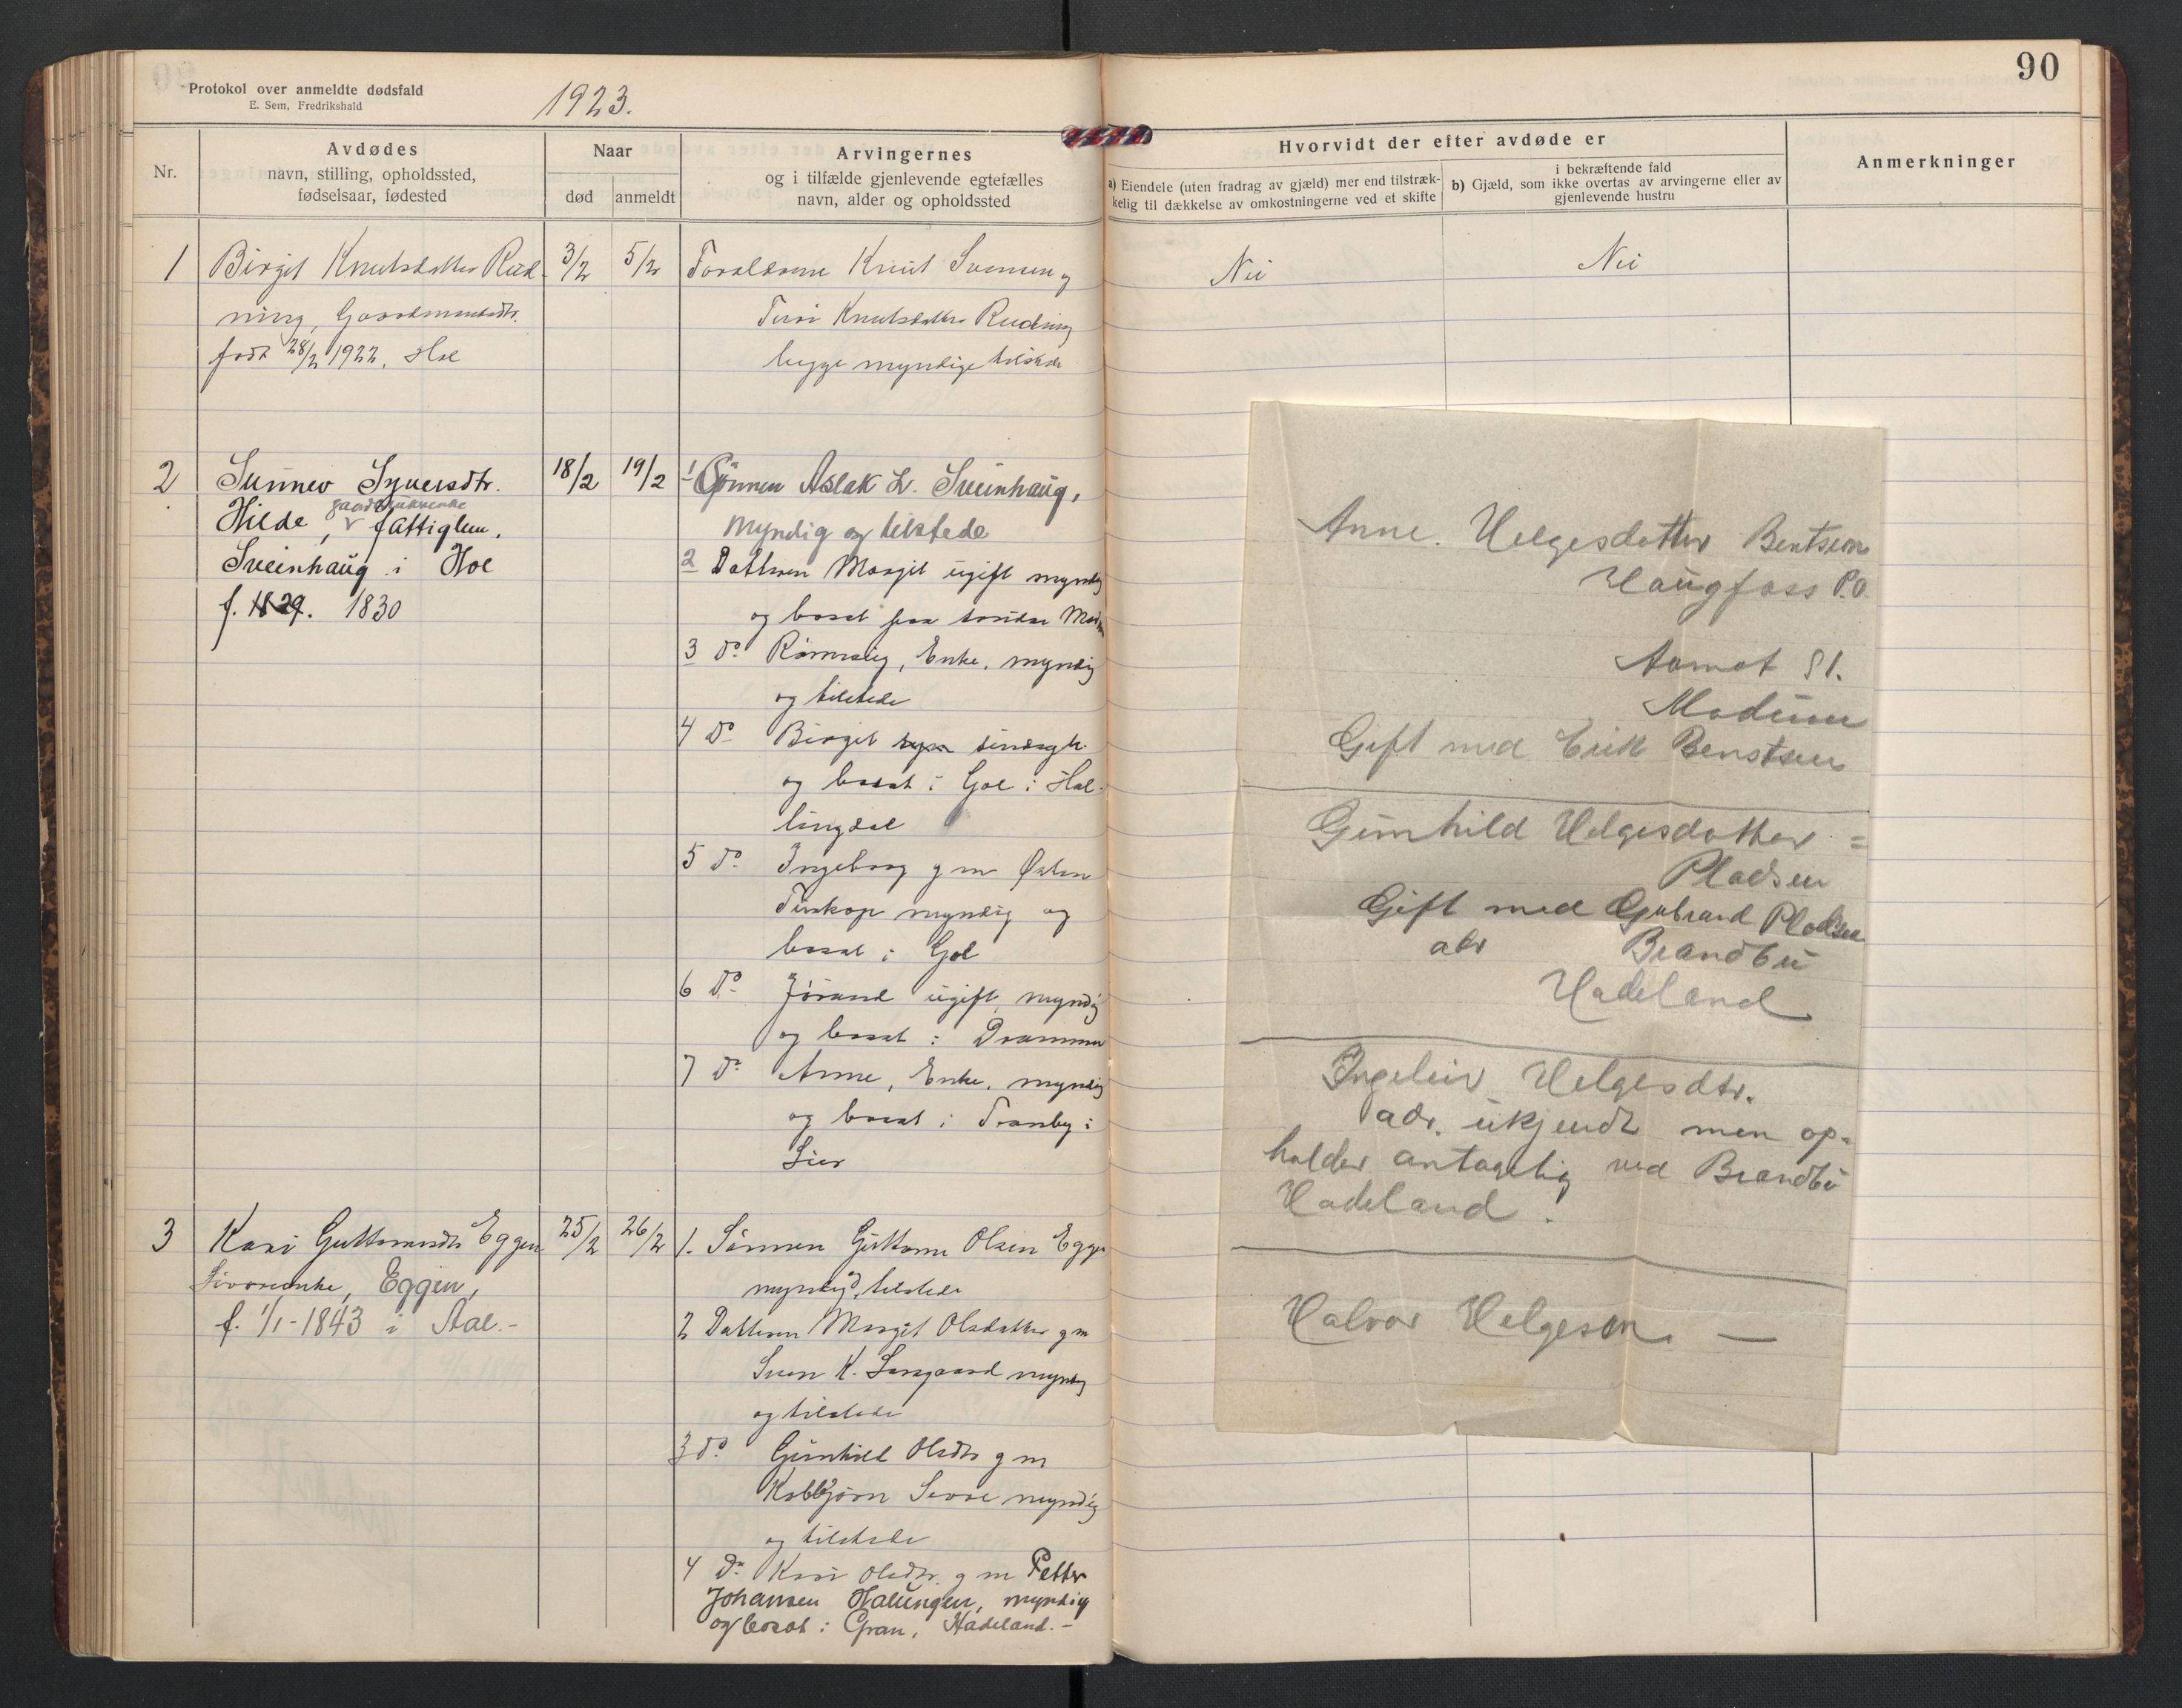 Protokol over anmeldte dødsfald
E. Sem, Fredrikshald
1923.
90
Nr.
Avdødes
navn, stilling, opholdssted,
fødselsaar, fødested
Naar
død
anmeldt
Arvingernes
og i tilfælde gjenlevende egtefælles
navn, alder og opholdssted
Hvorvidt der efter avdøde er
a) Eiendele (uten fradrag av gjæld) mer end tilstræk-
kelig til dækkelse av omkostningerne ved et skifte
i bekræftende fald
b) Gjæld, som ikke overtas av arvingerne eller av
gjenlevende hustru
Anmerkninger
1 Birgit Knutsdatter Rud- 3/2 5/2 Forældrene Knut Svensen og
ning, Gaardmandsdtr. Turi Knutsdatter Rudning
født 28/2 1922. Hol begge myndige tilstede
Nei
Nei
2 Sunnev Syversdtr. 18/2 19/2 1 Sønnen Aslak L. Sveinhaug,
gaardbrukerenke
Hilde, v fattiglem, Myndig og tilstede
Sveinhaug i Hol 2 Datteren Margit ugift myndig
f. 1829. 1830 og bosat paa søndre Modum
3 Do Rønnaug, Enke, myndig
og tilstede
4 Do Birgit sindssyk
og bosat i Gol i Hal-
lingdal
5 Do Ingeborg g m
myndig og
bosat i Gol
6 Do Jørand ugift, myndig
og bosat i Drammen
7 Do Anne, Enke, myndig
og bosat i Tranby i
Lier
3 Kari Guttormsdtr Eggen 25/2 26/2 1. Sønnen Guttorm Olsen Eggen
Livøreenke, Eggen, myndig og tilstede
f. 1/1-1843 i Aal.- 2 Datteren Margit Olsdatter g m
Sven K. myndig
og tilstede
3 do Gunhild Olsdtr g m
Kolbjørn myndig
og tilstede
4 Do Kari Olsdtr. g m Petter
Johansen Halungen, myndig
og bosat i Gran, Hadeland.-
Anne. Helgesdatter Bentsen
Haugfoss P.O.
Aamot St.
Modum
Gift med Erik Benstsen
Gunhild Helgesdatter =
Pladsen
Gift med Gubrand Pladsen
adr Brandbu
Hadeland
Ingeleiv Helgesdtr.
adr. ukjendt men op-
holder antagelig ved Brandbu
Hadeland.
Halvor Helgeson. —